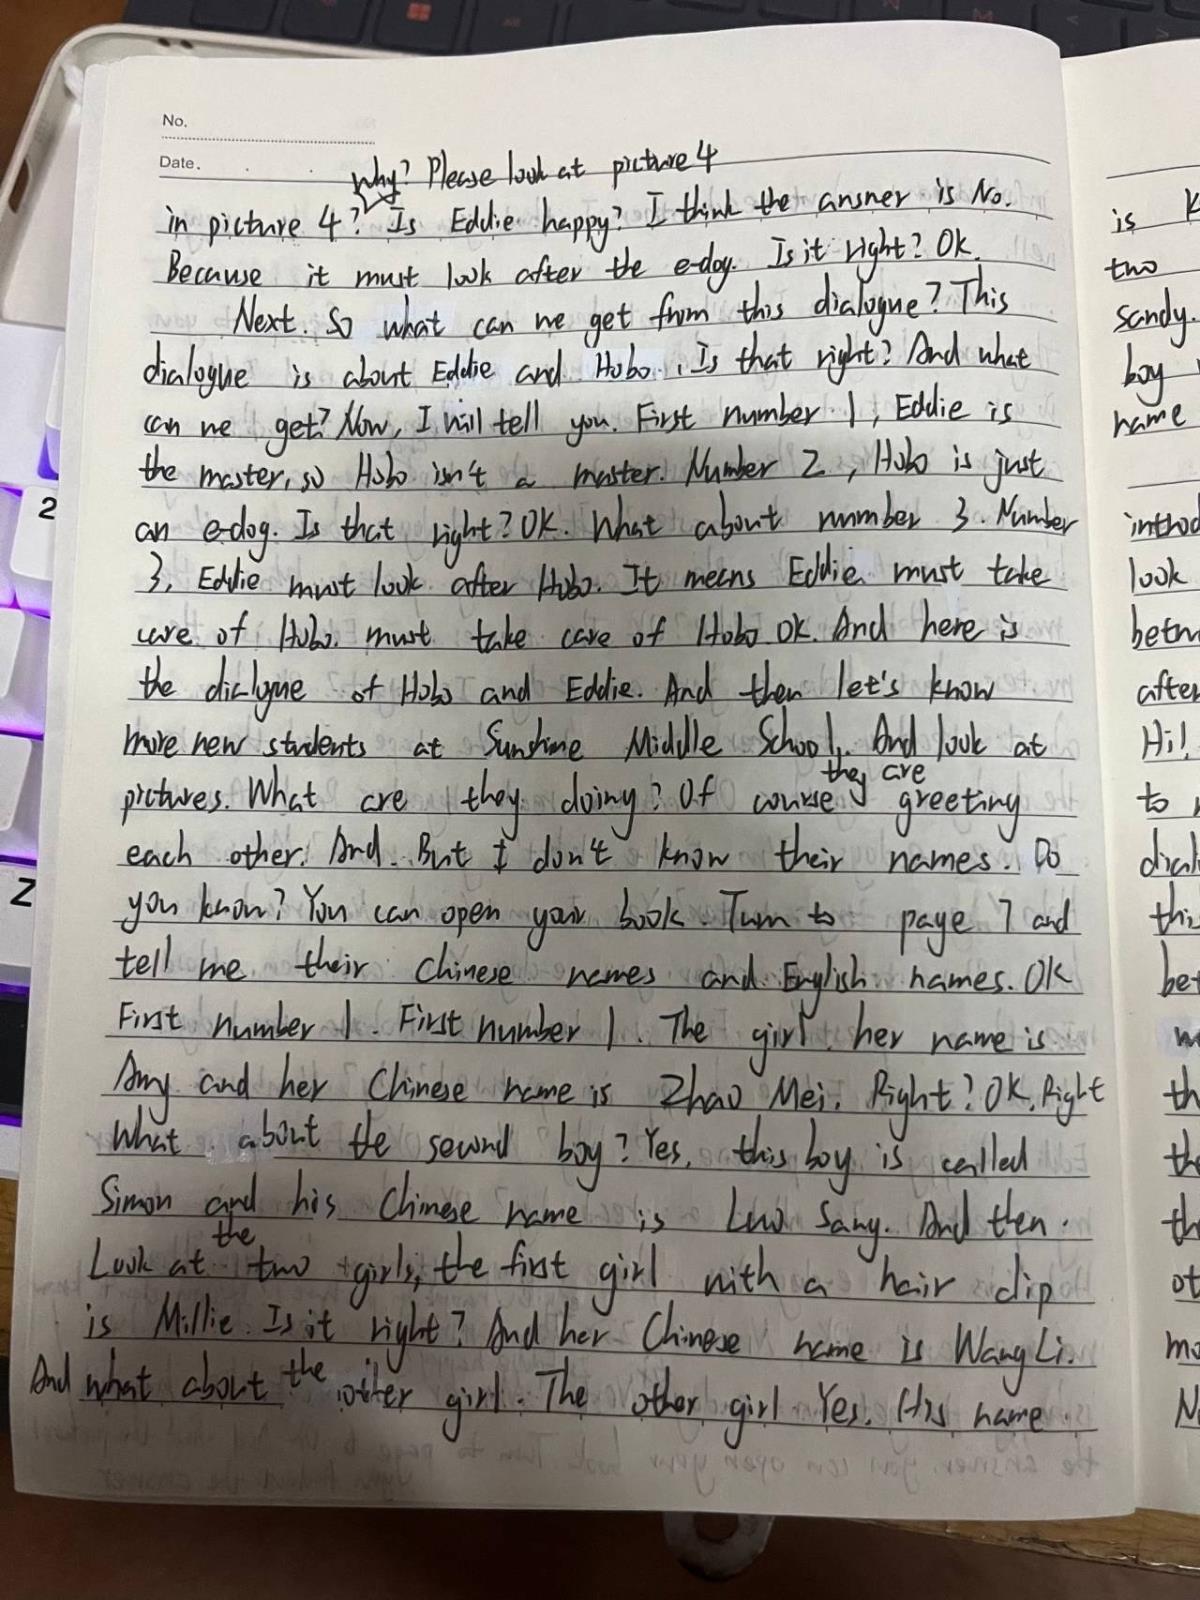 No.
Date.
Why? Please look at picture 4
in picture 4? Is Eddie happy? I think the answer is No.
Because it must look after the e-dog. Is it right? OK.
Next. So what can we get from this dialogue? This
dialogue is about Eddie and Hobo. Is that right? And what
can we get? Now, I will tell you. First number 1, Eddie is
the master, so Hobo isn't a master. Number 2, Hobo is just
an e-dog. Is that right? OK. What about number 3. Number
3, Eddie must look after Hobo. It means Eddie must take
care of Hobo. must take care of Hobo OK. And here is
the dialogue of Hobo and Eddie. And then let's know
more new students at Sunshine Middle School. And look at
pictures. What are they doing? Of course they are greeting
each other. And. But I don't know their names. Do
you know? You can open your book. Turn to page 7 and
tell me their Chinese names and English names. OK
First number 1. First number 1. The girl, her name is
Amy and her Chinese name is Zhao Mei. Right? OK, Right
What about the second boy? Yes, this boy is called
Simon and his Chinese name is Luo Sang. And then.
Look at the two girls, the first girl with a hair clip
is Millie. Is it right? And her Chinese name is Wang Li.
And what about the other girl. The other girl Yes. His name
is K
two
Sandy.
boy
name
look
after
Hi!
to